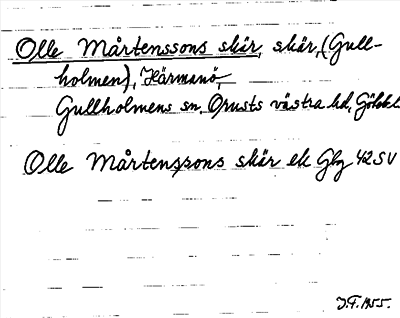 Olle Mårtenssons skär, skär, (Gull-
holmen), Härmanö,
Gullholmens sn, Orusts västra hd,
Olle Mårtenssons skär ek Gbg 42 SV
J.F. 1955.